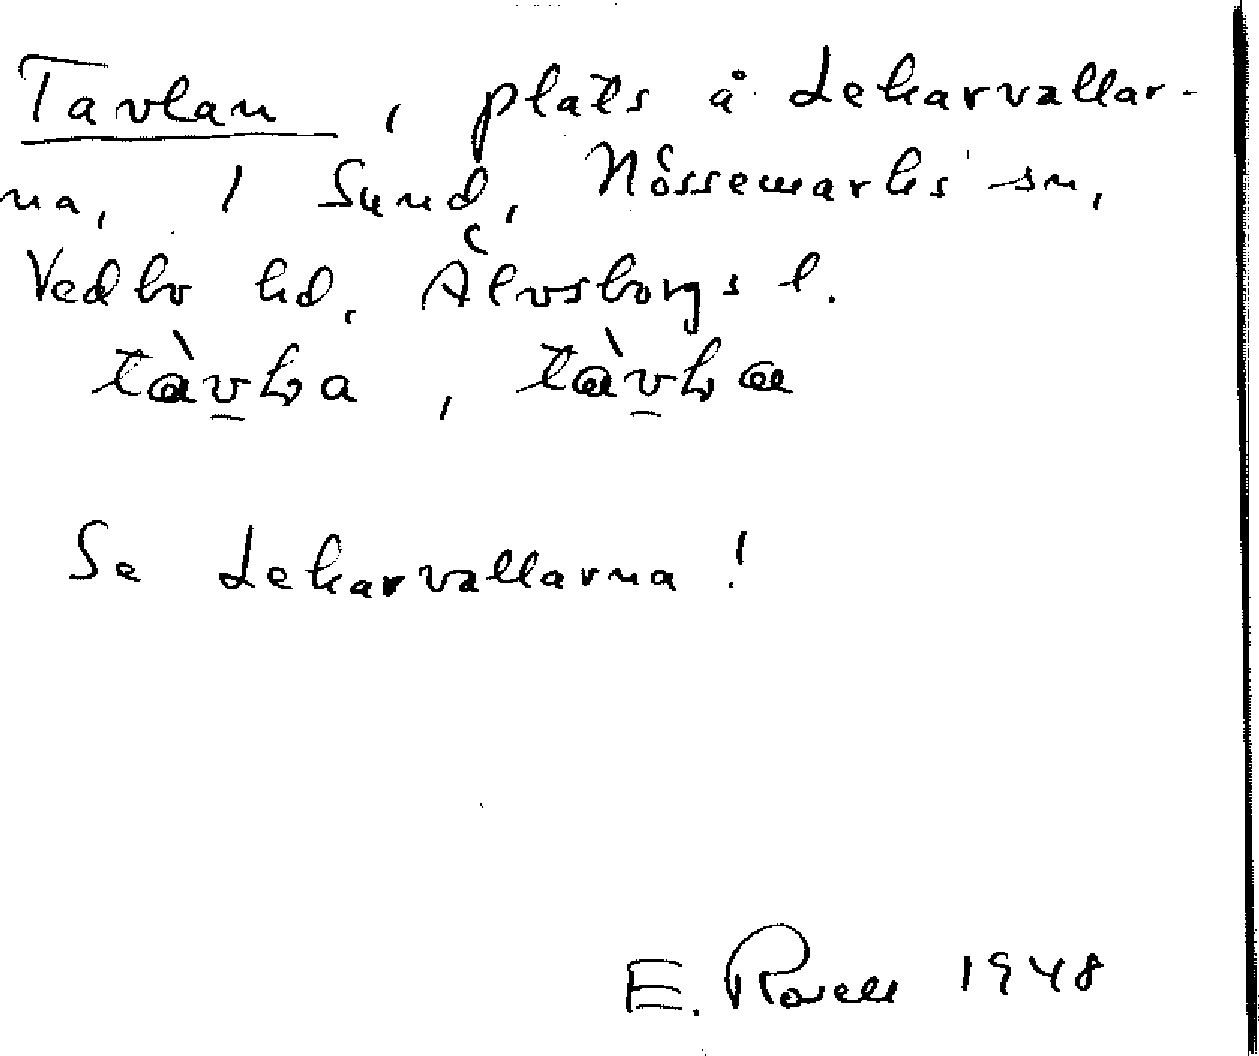 Tavlan, plats å Lekarvallar-
na, 1 Sund, Nössemarks sn,
Vedbo hd, Älvsborgs l.
Se Lekarvallarna!
E. Rosell 1948